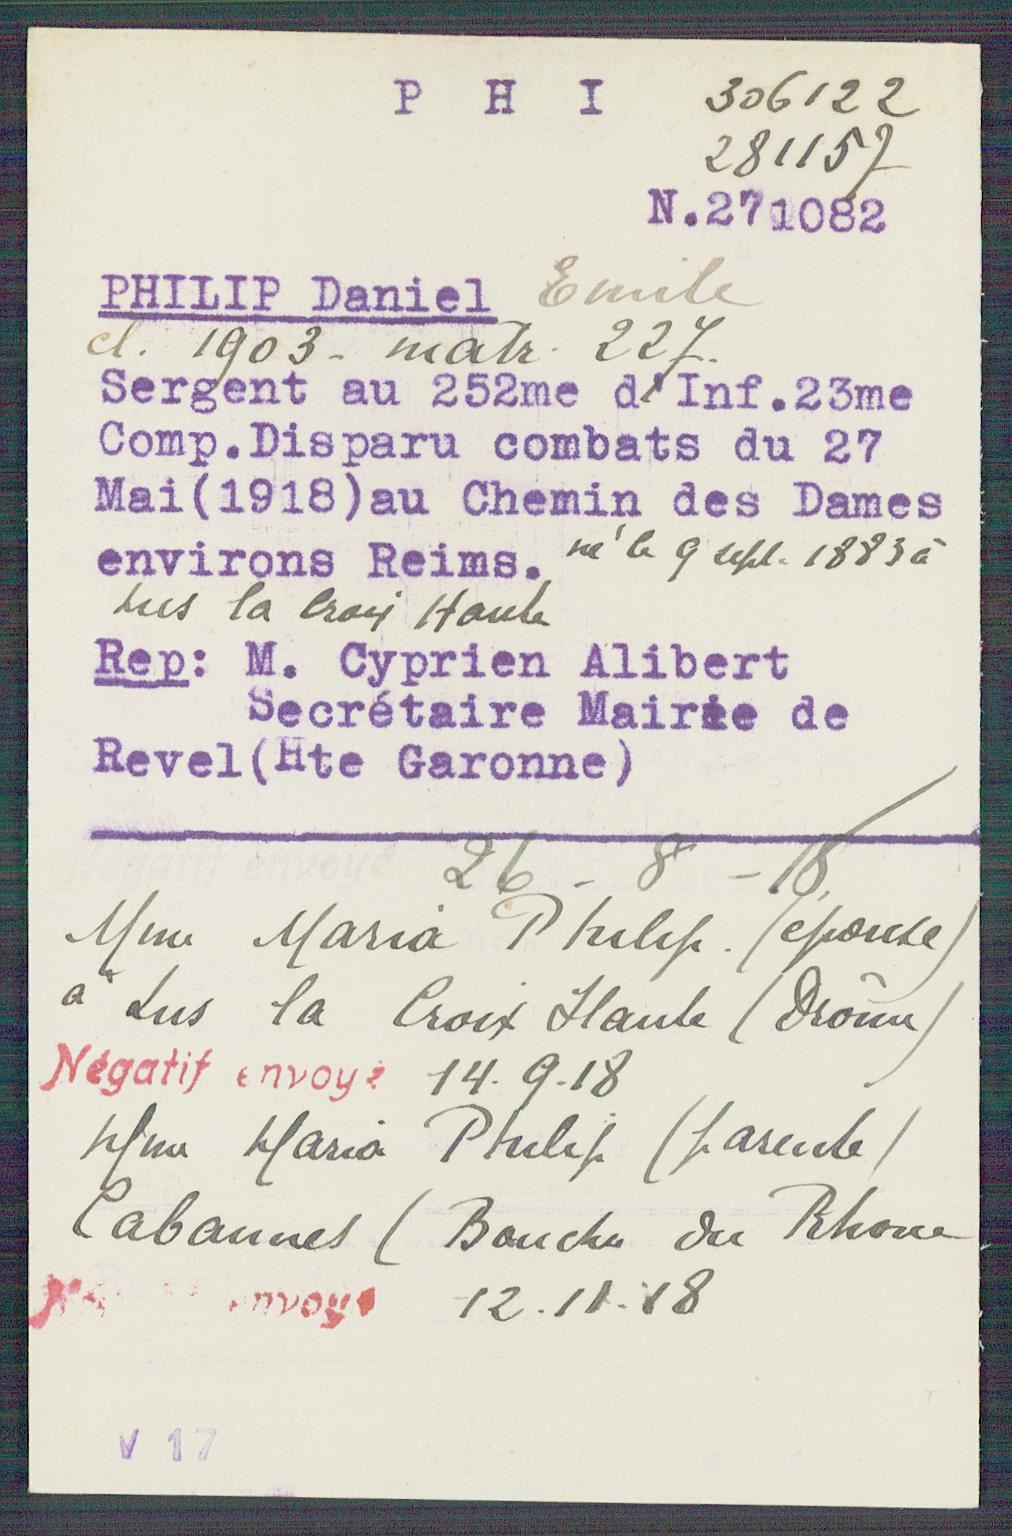 P H I 306122
281157
N.271082
PHILIP Daniel Emile
cl. 1903 - matr. 227.
Sergent au 252me d'Inf.23me
Comp.Disparu combats du 27
Mai(1918)au Chemin des Dames
environs Reims. né le 9 sept. 1883 à
Lus la Croix Haute
Rep: M. Cyprien Alibert
Secrétaire Mairie de
Revel(Hte Garonne)
Négatif envoyé 26 - 8 - 18
Mme Maria Philip. (épouse)
à Lus la Croix Haute (Drôme)
Négatif envoyé 14.9.18
Mme Maria Philip (parente)
Cabannes (Bouche du Rhone
envoyé 12.11.18
V 17